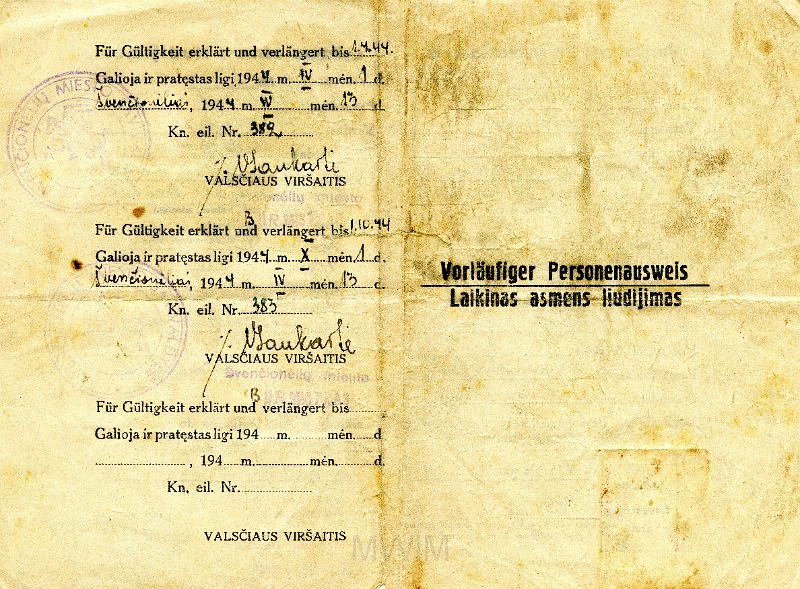 Für Gültigkeit erklärt und verlängert bis 1.4.44.
Galioja ir pratęstas ligi 1944 m. IV mėn. 1 d.
Švenčionėliai, 1944 m. IV mėn. 13 d.
Kn. eil. Nr. 382
VALSČIAUS VIRŠAITIS
B
Für Gültigkeit erklärt und verlängert bis 1.10.44
Galioja ir pratęstas ligi 1944 m. X mėn. 1 d.
Švenčionėliai, 1944 m. IV mėn. 13 d.
Kn. eil. Nr. 383
VALSČIAUS VIRŠAITIS
Švenčionėlių miesto
B
Für Gültigkeit erklärt und verlängert bis
Galioja ir pratęstas ligi 194 m. mėn. d.
, 194 m. mėn. d.
Kn. eil. Nr.
VALSČIAUS VIRŠAITIS
Vorläufiger Personenausweis
Laikinas asmens liudijimas
MWM